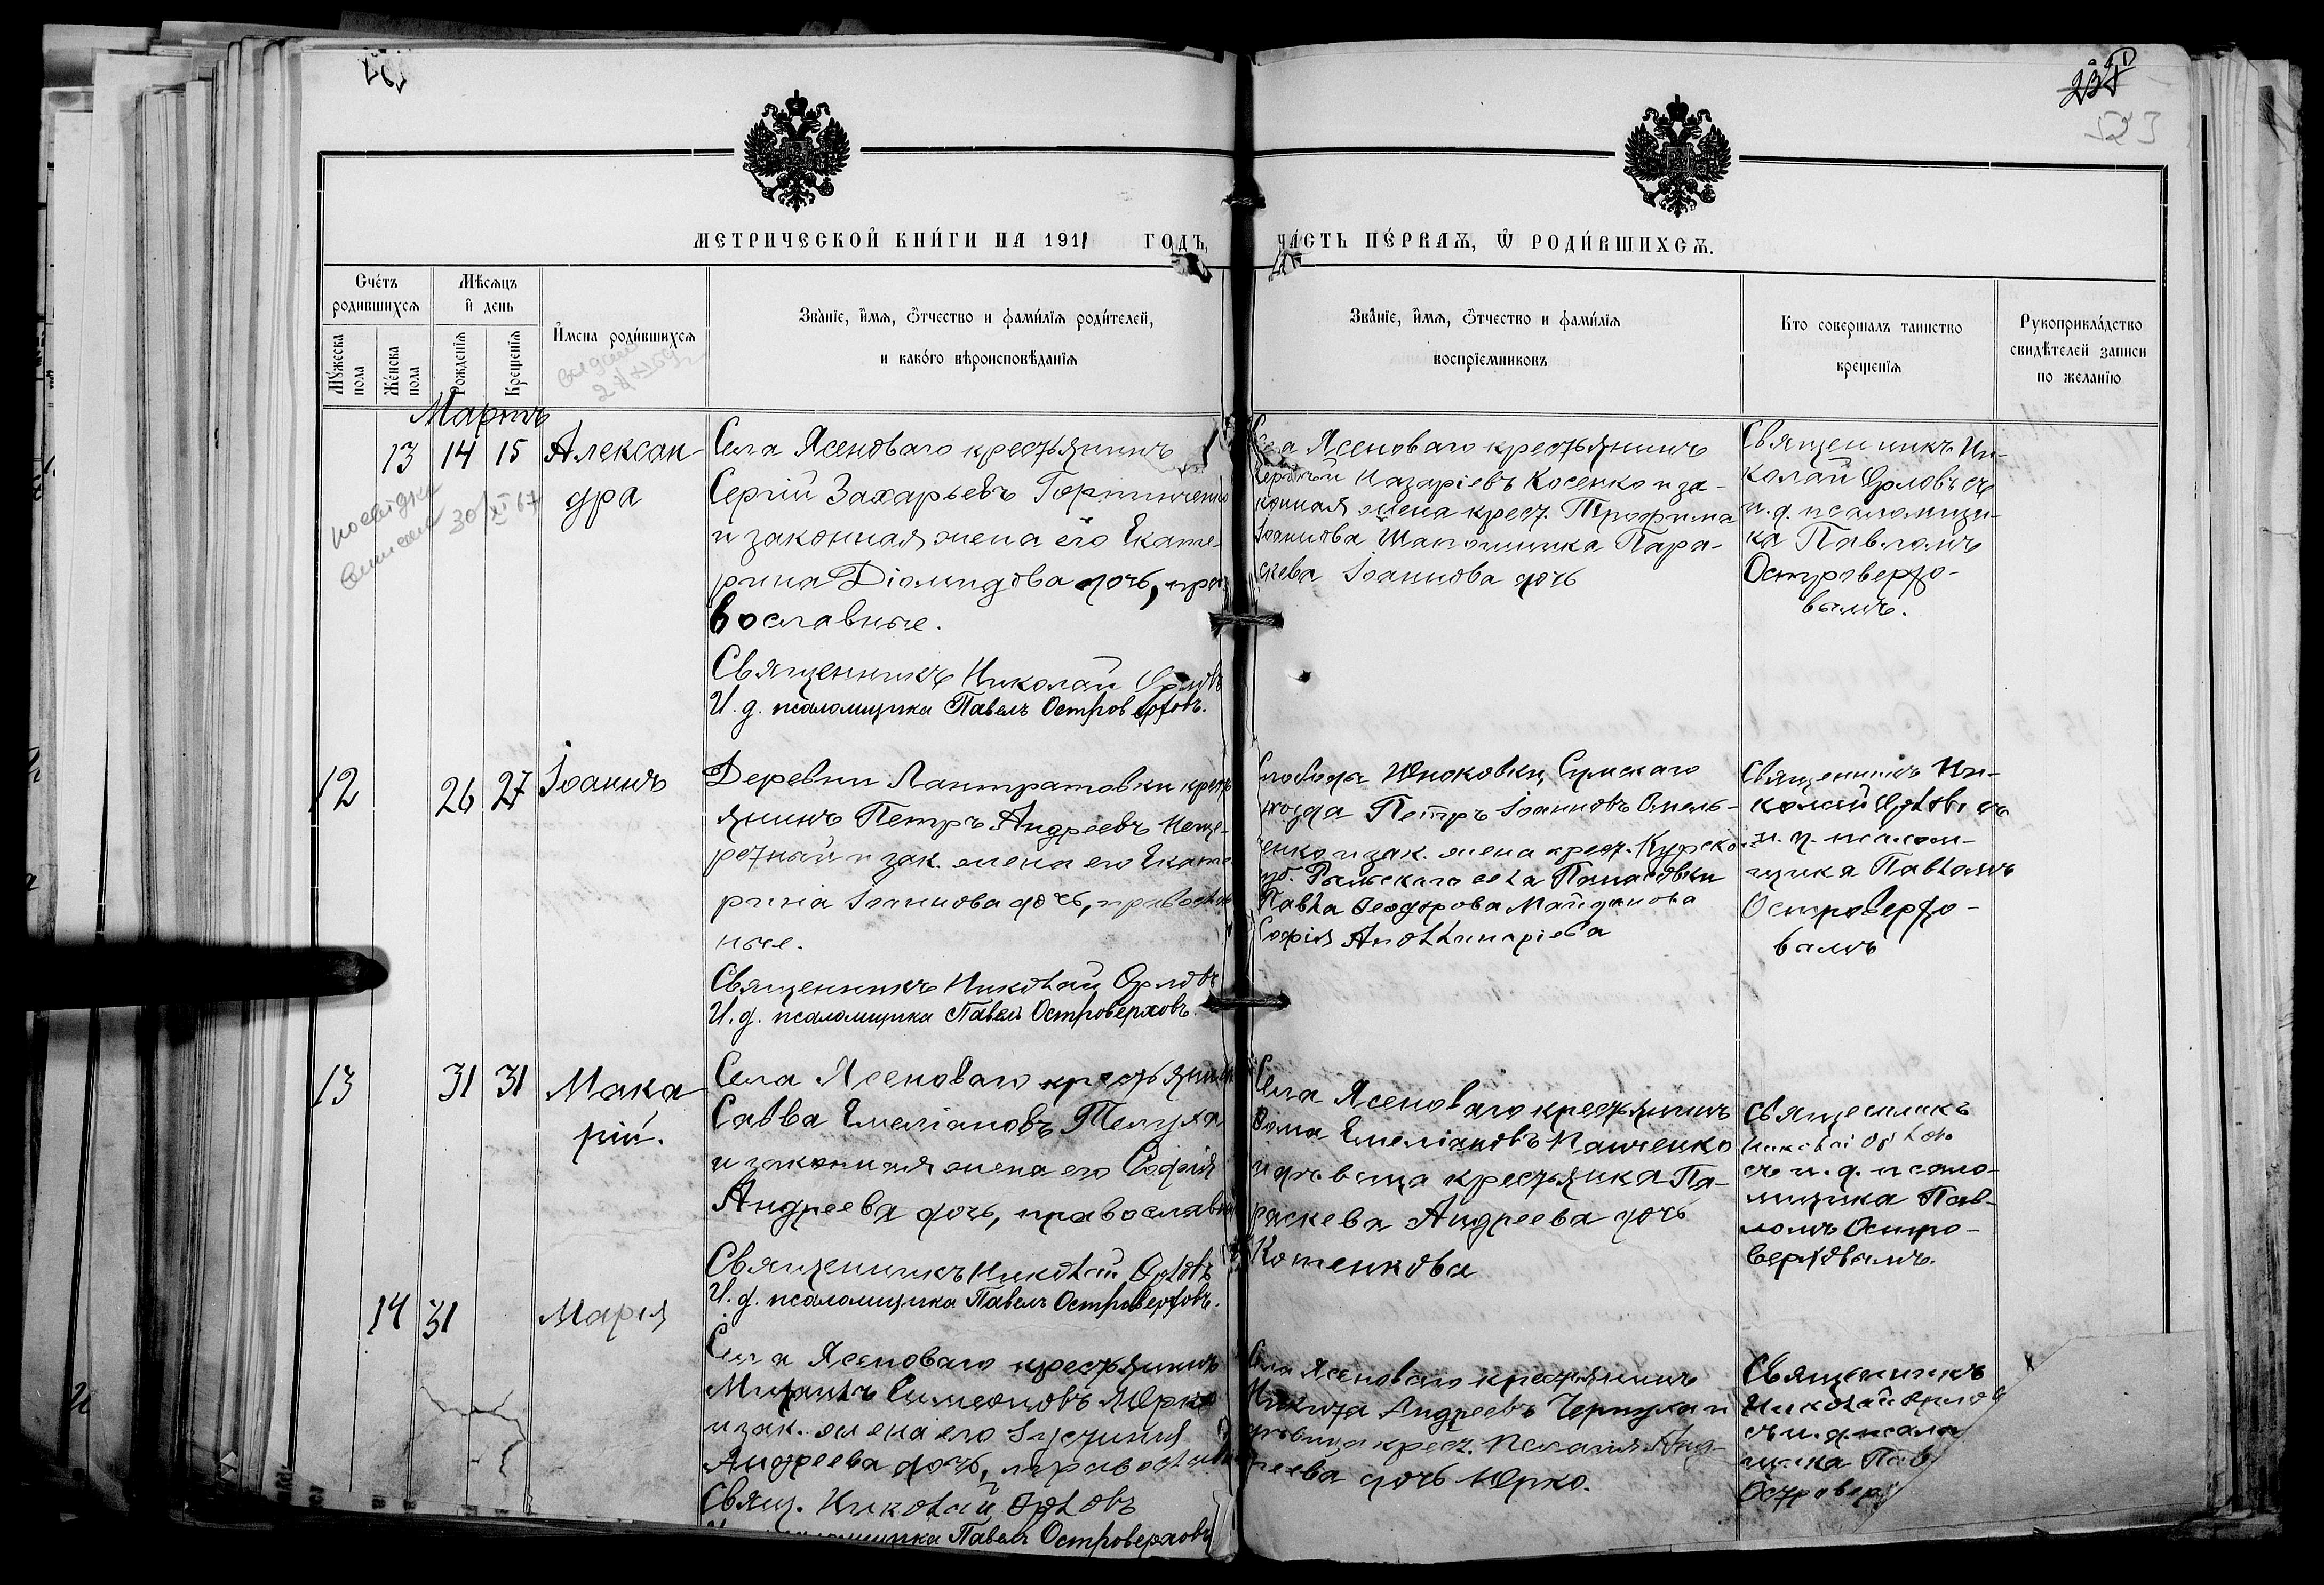 231
523
МЕТРИЧЕСКОЙ КНИГИ НА 1911 ГОДЪ,
ЧАСТЬ ПЕРВАЯ, Ѡ РОДИВШИХСЯ.
Счетъ родившихся
Мужеска пола
Женска пола
Мѣсяцъ и день
Рожденія
Крещенія
Имена родившихся
Званіе, имя, ѿчество и фамилія родителей,
и какого вѣроисповѣданія
Званіе, имя, ѿчество и фамилія
воспріемниковъ
Кто совершалъ таинство
крещенія
Рукоприкладство
свидѣтелей записи
по желанію
Мартъ
13 14 15 Алексан-
дра
30/XI 67
Села Ясеноваго крестьянинъ
Сергій Захарьевъ
и законная жена его Екате-
рина Діомидова дочь, пра-
вославные.
Священникъ Николай Орловъ
И. д. псаломщика Павелъ Островерховъ.
Села Ясеноваго крестьянинъ
Сергій Назаріевъ Косенко и за-
конная жена крест. Трофима
Іоаннова Шапошника Пара-
скева Іоаннова дочь
Священникъ Ни-
колай Орловъ съ
и. д. псаломщи-
ка Павломъ
Островерхо-
вымъ.
12 26 27 Іоаннъ
Деревни Лантратовки крест
янинъ Петръ Андреевъ Неще-
ретный и зак. жена его Екате-
рина Іоаннова дочь, православ
ные.
Священникъ Николай Орловъ
И. д. псаломщика Павелъ Островерховъ.
Слободы Юнаковки, Сумскаго
уезда Петръ Іоанновъ Омель-
ченко и зак. жена крест. Курско
губ. Рыльскаго
Павла Ѳеодорова Майданова
Софія Аполлинаріева
Священникъ Ни-
колай Орловъ съ
и. д. псалом-
щика Павломъ
Островерхо-
вымъ
13 31 31 Мака-
рій.
Села Ясеноваго крестьянинъ
Савва Емеліановъ Пелуха
и законная жена его Софія
Андреева дочь, православные
Священникъ Николай Орловъ
И. д. псаломщика Павелъ Островерховъ.
Села Ясеноваго крестьянинъ
Ѳома Емеліановъ Панченко
и дѣвица крестьянка Па-
раскева Андреева дочь
Котенкова
Священникъ
Николай Орловъ
съ и. д. псало-
мщика Пав-
ломъ Остро-
верховымъ.
14 31 Марія
Села Ясеноваго крестьянинъ
Михаилъ Симеоновъ Юрко
и зак. жена его Іустинія
Андреева дочь, православные
Свящ. Николай Орловъ
псаломщика Павелъ Островерховъ
Села Ясеноваго крестьянинъ
Никита Андреевъ Чернуха и
дѣвица крест. Пелагія Анд-
реева дочь Юрко.
Священникъ
Николай Орлов
съ и. д. псало
мщика Пав
Островер